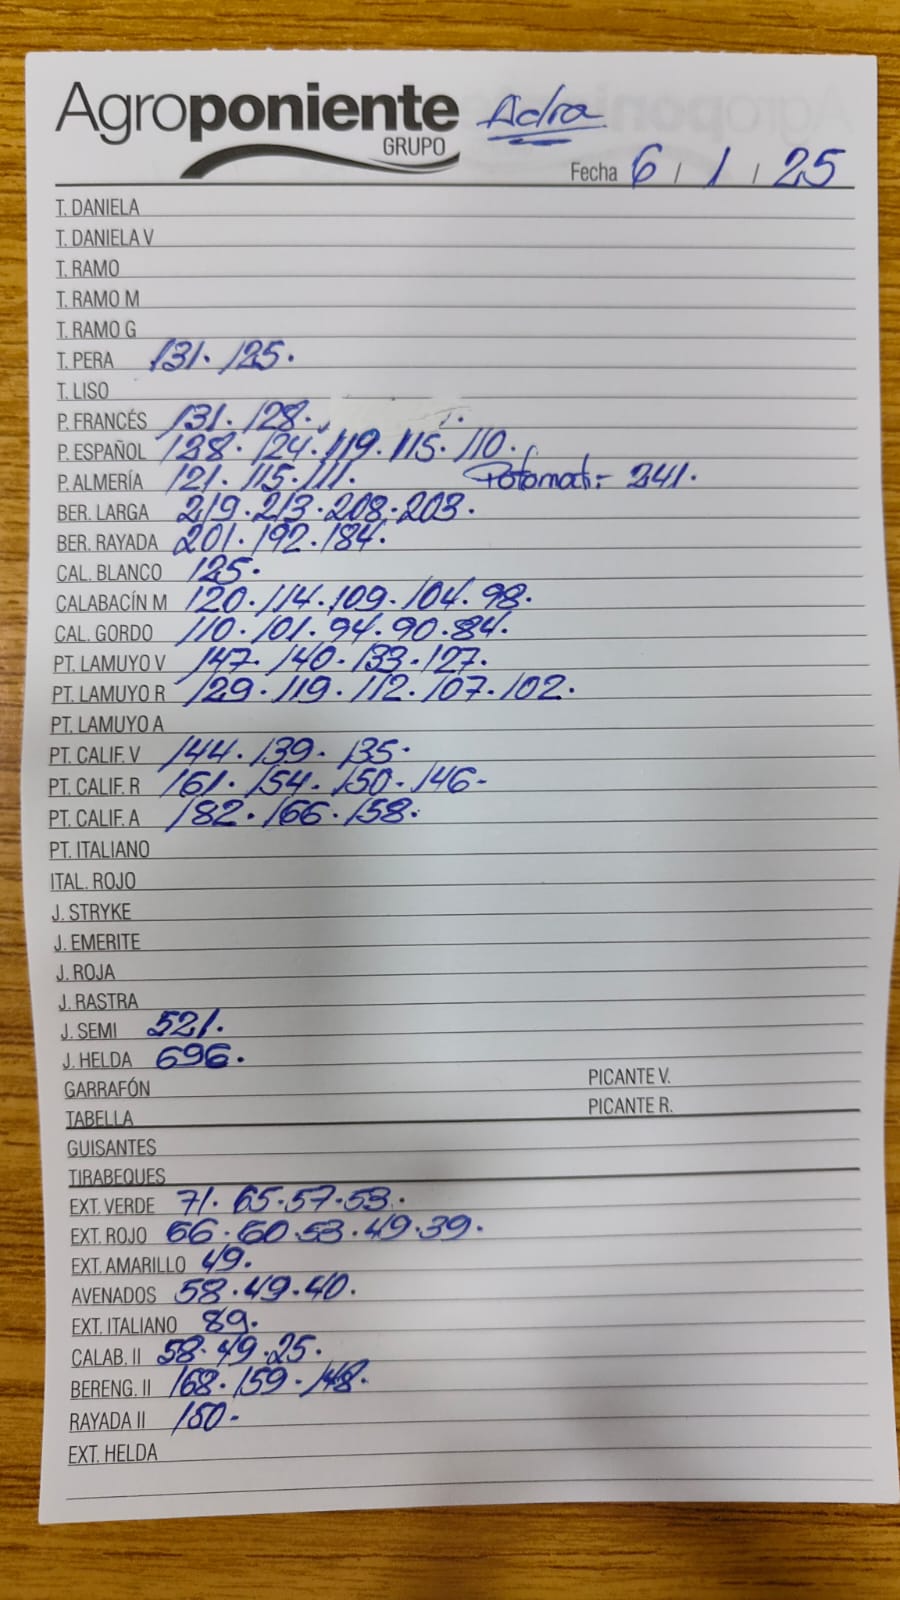 Agroponiente Adra
GRUPO
Fecha 6 / 1 / 25
T. DANIELA
T. DANIELA V
T. RAMO
T. RAMO M
T. RAMO G
T. PERA 131. 125.
T. LISO
P. FRANCÉS 131. 128.
P. ESPAÑOL 128. 124. 119. 115. 110.
P. ALMERÍA 121. 115. 111. 241.
BER. LARGA 219. 213. 208. 203.
BER. RAYADA 201. 192. 184.
CAL. BLANCO 125.
CALABACÍN M 120. 114. 109. 104. 98.
CAL. GORDO 110. 101. 94. 90. 84.
PT. LAMUYO V 147. 140. 133. 127.
PT. LAMUYO R 129. 119. 112. 107. 102.
PT. LAMUYO A
PT. CALIF. V 144. 139. 135.
PT. CALIF. R 161. 154. 150. 146-
PT. CALIF. A 182. 166. 158.
PT. ITALIANO
ITAL. ROJO
J. STRYKE
J. EMERITE
J. ROJA
J. RASTRA
J. SEMI 521.
J. HELDA 696.
GARRAFÓN PICANTE V.
TABELLA PICANTE R.
GUISANTES
TIRABEQUES
EXT. VERDE 71. 65. 57. 53.
EXT. ROJO 66. 60. 53. 49. 39.
EXT. AMARILLO 49.
AVENADOS 58. 49. 40.
EXT. ITALIANO 89.
CALAB. II 58. 49. 25.
BERENG. II 168. 159. 148.
RAYADA II 150-
EXT. HELDA